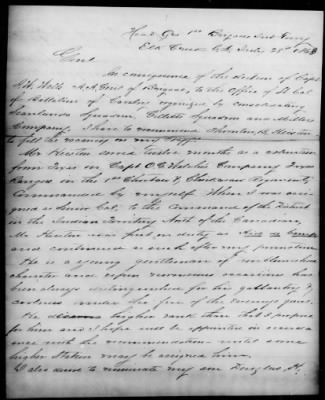 Head Qrs 1st Brigade Ind Cavy
Elk Creek C.N. July 28th 1863
Genl
In consequence of the election of Capt
J.W. Wells A.A. Genl of Brigade, to the Office of Lt Col
of Battalion of Cavalry organized by consolidating
Scanlands Squadron, Gilletts Squadron and Millers
Company, I have to recommend B. Heiston
to fill the vacancy on my Staff.
Mr Heiston served twelve months as a volunteer
from Texas in Capt O.G. Welch's Company Texas
Rangers in the 1st Choctaw & Chickasaw Regiment,
Commanded by myself. When I was
assigned as Genl, to the Command of the District
in the Indian Territory North of the Canadian,
Mr Heiston was put on duty as
and continued as such after my promotion
He is a young gentleman of unblemished
character and upon numerous occasions has
been always distinguished for his gallantry &
coolness under the fire of the enemys guns.
He deserves higher rank than that I propose
for him and I hope will be appointed in accord-
ance with the recommendation until some
higher Station may be assigned him.
I also desire to nominate my son Douglas H.